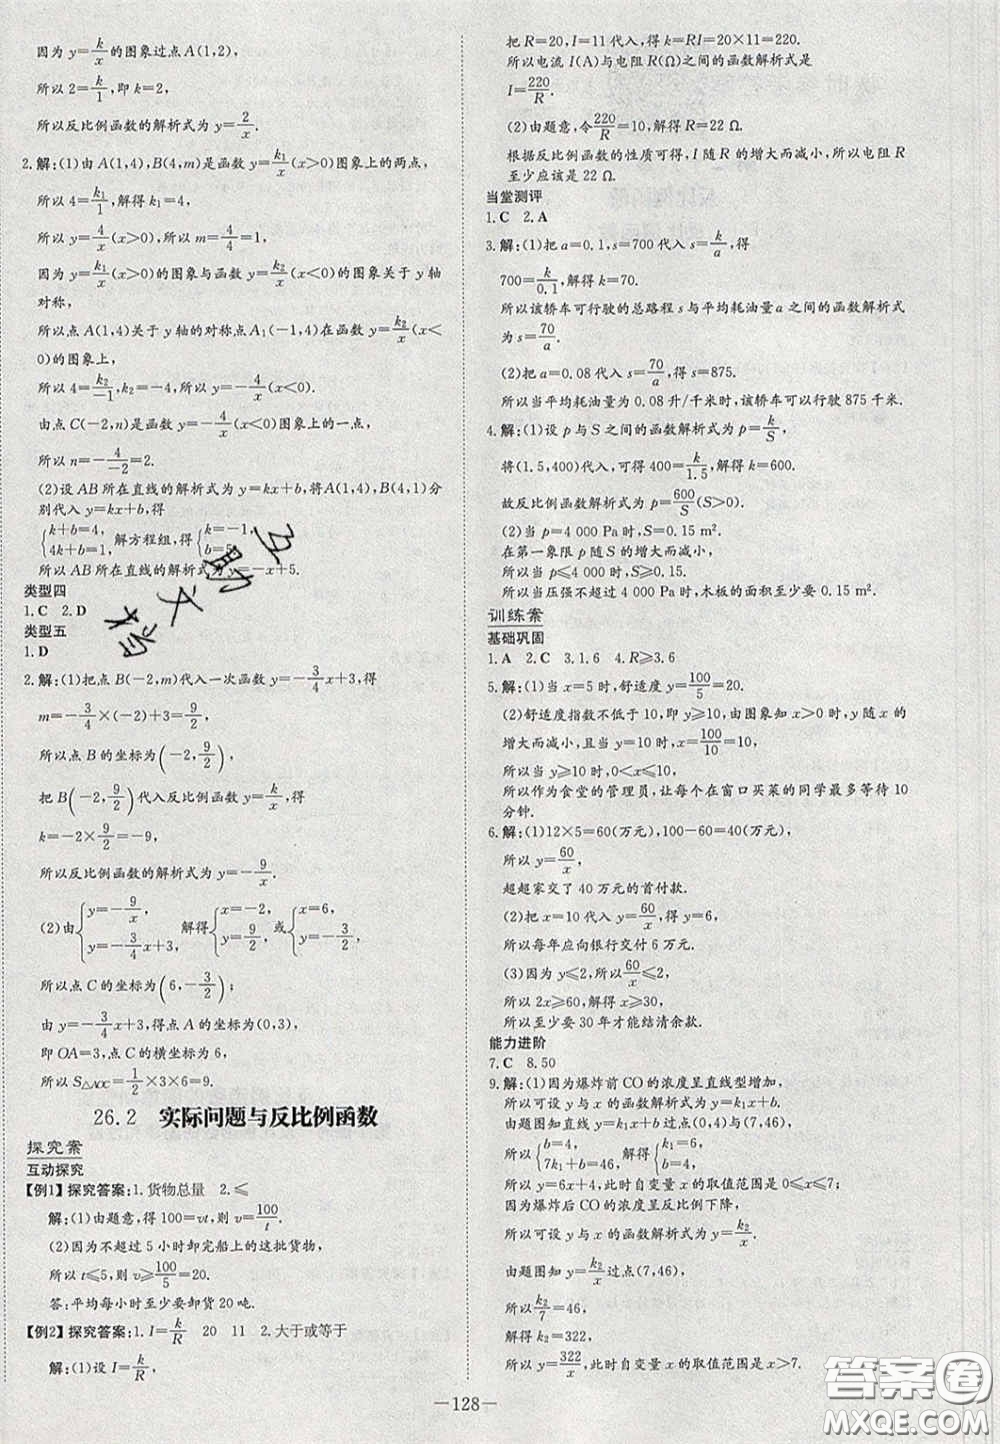 因为 y=k/x 的图象过点 A(1,2),
所以 2=k/1,即 k=2,
所以反比例函数的解析式为 y=2/x.
2.解:(1)由 A(1,4),B(4,m)是函数 y=k₁/x(x>0)图象上的两点,
所以 4=k₁/1,解得 k₁=4,
所以 y=4/x(x>0),所以 m=4/4=1,
因为 y=k₁/x(x>0)的图象与函数 y=k₂/x(x<0)的图象关于 y 轴
对称,
所以点 A(1,4)关于 y 轴的对称点 A₁(-1,4)在函数 y=k₂/x(x<
0)的图象上,
所以 4=k₂/-1,k₂=-4,所以 y=-4/x(x<0).
由点 C(-2,n)是函数 y=-4/x(x<0)图象上的一点,
所以 n=-4/-2=2.
(2)设 AB 所在直线的解析式为 y=kx+b,将 A(1,4),B(4,1)分
别代入 y=kx+b,得
{k+b=4, 4k+b=1, 解方程组,得{k=-1, b=5.
所以 AB 所在直线的解析式为 y=-x+5.
类型四
1.C 2.D
类型五
1.D
2.解:(1)把点 B(-2,m)代入一次函数 y=-3/4x+3,得
m=-3/4×(-2)+3=9/2,
所以点 B 的坐标为(-2,9/2)
把 B(-2,9/2)代入反比例函数 y=k/x,得
k=-2×9/2=-9,
所以反比例函数的解析式为 y=-9/x.
(2)由{y=-9/x, y=-3/4x+3, 解得{x=-2, y=9/2, 或{x=6, y=-3/2.
所以点 C 的坐标为(6,-3/2);
由 y=-3/4x+3,得点 A 的坐标为(0,3),
即 OA=3,点 C 的横坐标为 6,
所以 S△AOC=1/2×3×6=9.
26.2 实际问题与反比例函数
探究案
互动探究
【例1】探究答案:1.货物总量 2.≤
解:(1)由题意,得 100=vt,则 v=100/t.
(2)因为不超过 5 小时卸完船上的这批货物,
所以 t≤5,则 v≥100/5=20.
答:平均每小时至少要卸货 20 吨.
【例2】探究答案:1.I=k/R 20 11 2.大于或等于
解:(1)设 I=k/R,
把 R=20,I=11 代入,得 k=RI=20×11=220.
所以电流 I(A)与电阻 R(Ω)之间的函数解析式是
I=220/R.
(2)由题意,令220/R=10,解得 R=22 Ω.
根据反比例函数的性质可得,I 随 R 的增大而减小,所以电阻 R
至少应该是 22 Ω.
当堂测评
1.C 2.A
3.解:(1)把 a=0.1,s=700 代入 s=k/a,得
700=k/0.1,解得 k=70.
所以该轿车可行驶的总路程 s 与平均耗油量 a 之间的函数解析式
为 s=70/a.
(2)把 a=0.08 代入 s=70/a,得 s=875.
所以当平均耗油量为 0.08 升/千米时,该轿车可以行驶 875 千米.
4.解:(1)设 p 与 S 之间的函数解析式为 p=k/S,
将(1.5,400)代入,可得 400=k/1.5,解得 k=600.
故反比例函数解析式为 p=600/S(S>0).
(2)当 p=4 000 Pa 时,S=0.15 m².
在第一象限 p 随 S 的增大而减小,
所以当 p≤4 000 Pa 时,S≥0.15 m².
所以当压强不超过 4 000 Pa 时,木板的面积至少要 0.15 m².
训练案
基础巩固
1.A 2.C 3.1.6 4.R≥3.6
5.解:(1)当 x=5 时,舒适度 y=100/5=20.
(2)舒适度指数不低于 10,即 y≥10,由图象知 x>0 时,y 随 x 的
增大而减小,且当 y=10 时,x=100/10=10,
所以当 y≥10 时,0<x≤10,
所以作为食堂的管理员,让每个在窗口买菜的同学最多等待 10
分钟.
6.解:(1)12×5=60(万元),100-60=40(万元),
所以 y=60/x,
超超家交了 40 万元的首付款.
(2)把 x=10 代入 y=60/x,得 y=6,
所以每年应向银行交付 6 万元.
(3)因为 y≤2,所以60/x≤2,
所以 2x≥60,解得 x≥30,
所以至少要 30 年才能结清余款.
能力进阶
7.C 8.50
9.解:(1)因为爆炸前 CO 的浓度呈直线型增加,
所以可设 y 与 x 的函数解析式为 y=k₁x+b,
由题图知直线 y=k₁x+b 过点(0,4),(7,46),
所以{b=4, 7k₁+b=46, 解得{k₁=6, b=4.
所以 y=6x+4,此时自变量 x 的取值范围是 0≤x≤7;
因为爆炸后 CO 的浓度呈反比例下降,
所以可设 y 与 x 的函数解析式为 y=k₂/x,
由题图知 y=k₂/x 过点(7,46),
所以k₂/7=46,
解得 k₂=322,
所以 y=322/x,此时自变量 x 的取值范围是 x>7.
—128—
互助文档
答案圈
MXQE.COM